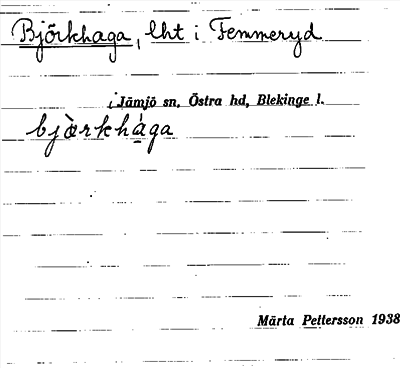 Björkhaga, lht i Femmeryd
i Jämjö sn, Östra hd, Blekinge l.
bjàrkhága
Märta Pettersson 1938